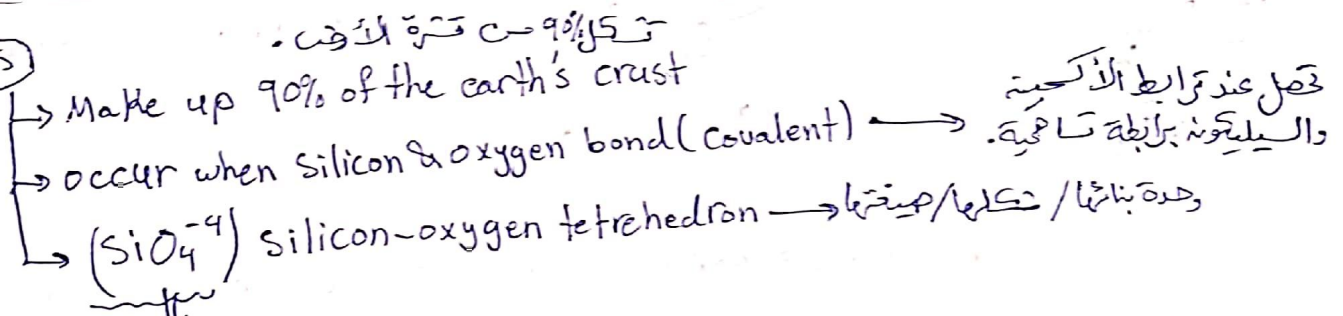 تشكل 90% من قشرة الأرض.
↳ Make up 90% of the earth's crust
↳ occur when silicon & oxygen bond (covalent) → تحصل عند ترابط الأكسجين
والسيليكون برابطة تساهمية.
↳ (SiO₄⁻⁴) silicon-oxygen tetrehedron → وحدة بنائها / شكلها / صيغتها